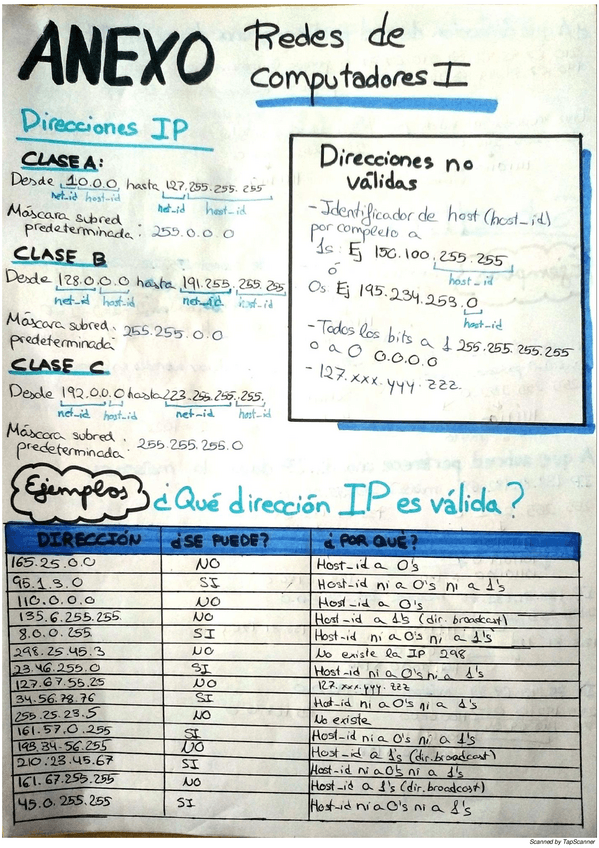 ANEXO Redes de
computadores I
Direcciones IP
CLASE A:
Desde 1.0.0.0 hasta 127.255.255.255
net_id host_id net_id host_id
Máscara subred
predeterminada: 255.0.0.0
CLASE B
Desde 128.0.0.0 hasta 191.255.255.255
net_id host_id net_id host_id
Máscara subred:
predeterminada: 255.255.0.0
CLASE C
Desde 192.0.0.0 hasta 223.255.255.255,
net_id host_id net_id host_id
Máscara subred:
predeterminada 255.255.255.0
Direcciones no
válidas
- Identificador de host (host_id)
por completo a
1s: Ej 150.100.255.255
host_id
ó
0s Ej 195.234.253.0
host_id
- Todos los bits a 1 255.255.255.255
o a 0 0.0.0.0
- 127.xxx.yyy.zzz
Ejemplos ¿Qué dirección IP es válida?
DIRECCIÓN ¿SE PUEDE? ¿POR QUÉ?
165.25.0.0 NO Host_id a 0's
95.1.3.0 SI Host_id ni a 0's ni a 1's
110.0.0.0 NO Host_id a 0's
135.6.255.255 NO Host_id a 1's (dir. broadcast)
8.0.0.255 SI Host_id ni a 0's ni a 1's
298.25.45.3 NO No existe la IP 298
23.46.255.0 SI Host_id ni a 0's ni a 1's
127.67.55.25 NO 127.xxx.yyy.zzz
34.56.78.76 SI Host_id ni a 0's ni a 1's
255.25.23.5 NO No existe
161.57.0.255 SI Host_id ni a 0's ni a 1's
198.34.56.255 NO Host_id a 1's (dir. broadcast)
210.23.45.67 SI Host_id ni a 0's ni a 1's
161.67.255.255 NO Host_id a 1's (dir. broadcast)
45.0.255.255 SI Host_id ni a 0's ni a 1's
Scanned by TapScanner